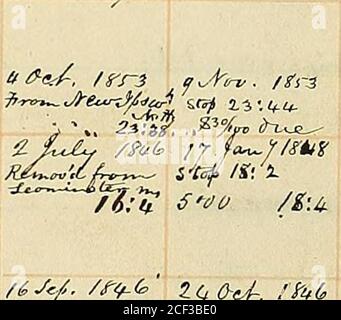 4 Oct. 1853
From New Ipswh
N.H
23:38.
2 July 1846
Remov'd from
Leominster ms
16:4
16 Sep. 1846
9 Nov. 1853
Stop 23:44
$3 0/00 due
17 Jany 1848
Stop 18:2
5'00 18:4
24 Oct. 1846